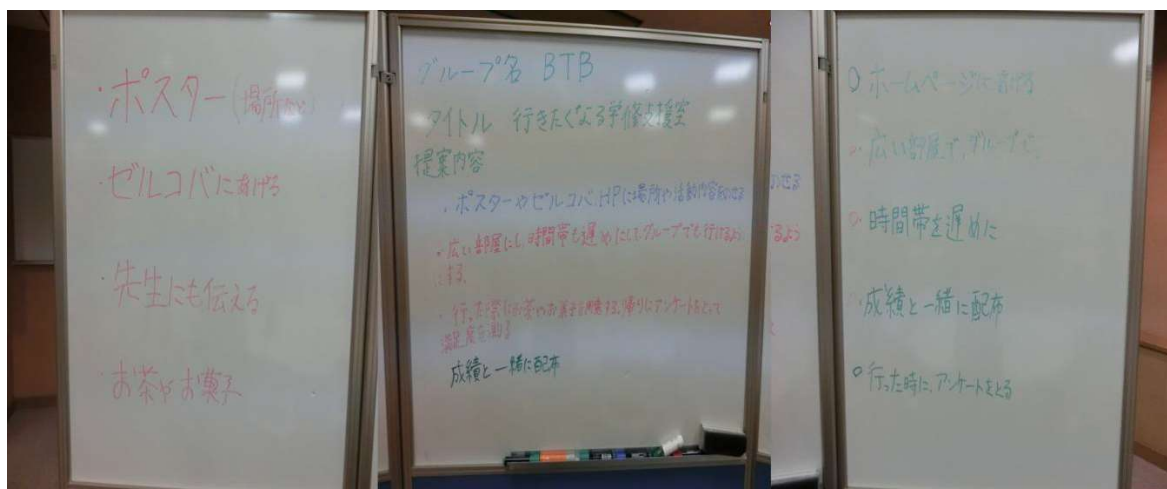 ・ポスター(場所など)
・ゼルコバにあげる
・先生にも伝える
・お茶やお菓子
グループ名 BTB
タイトル 行きたくなる学修支援室
提案内容
・ポスターやゼルコバ、HPに場所や活動内容をのせる
・広い部屋にし、時間帯も遅めにして、グループでも行けるよう
にする。
・行った際にお茶やお菓子を用意する。帰りにアンケートをとって
満足度を測る
成績と一緒に配布
のせる
るよう
○ホームページにあげる
・広い部屋で、グループで、
○時間帯を遅めに
・成績と一緒に配布
○行った時に、アンケートをとる